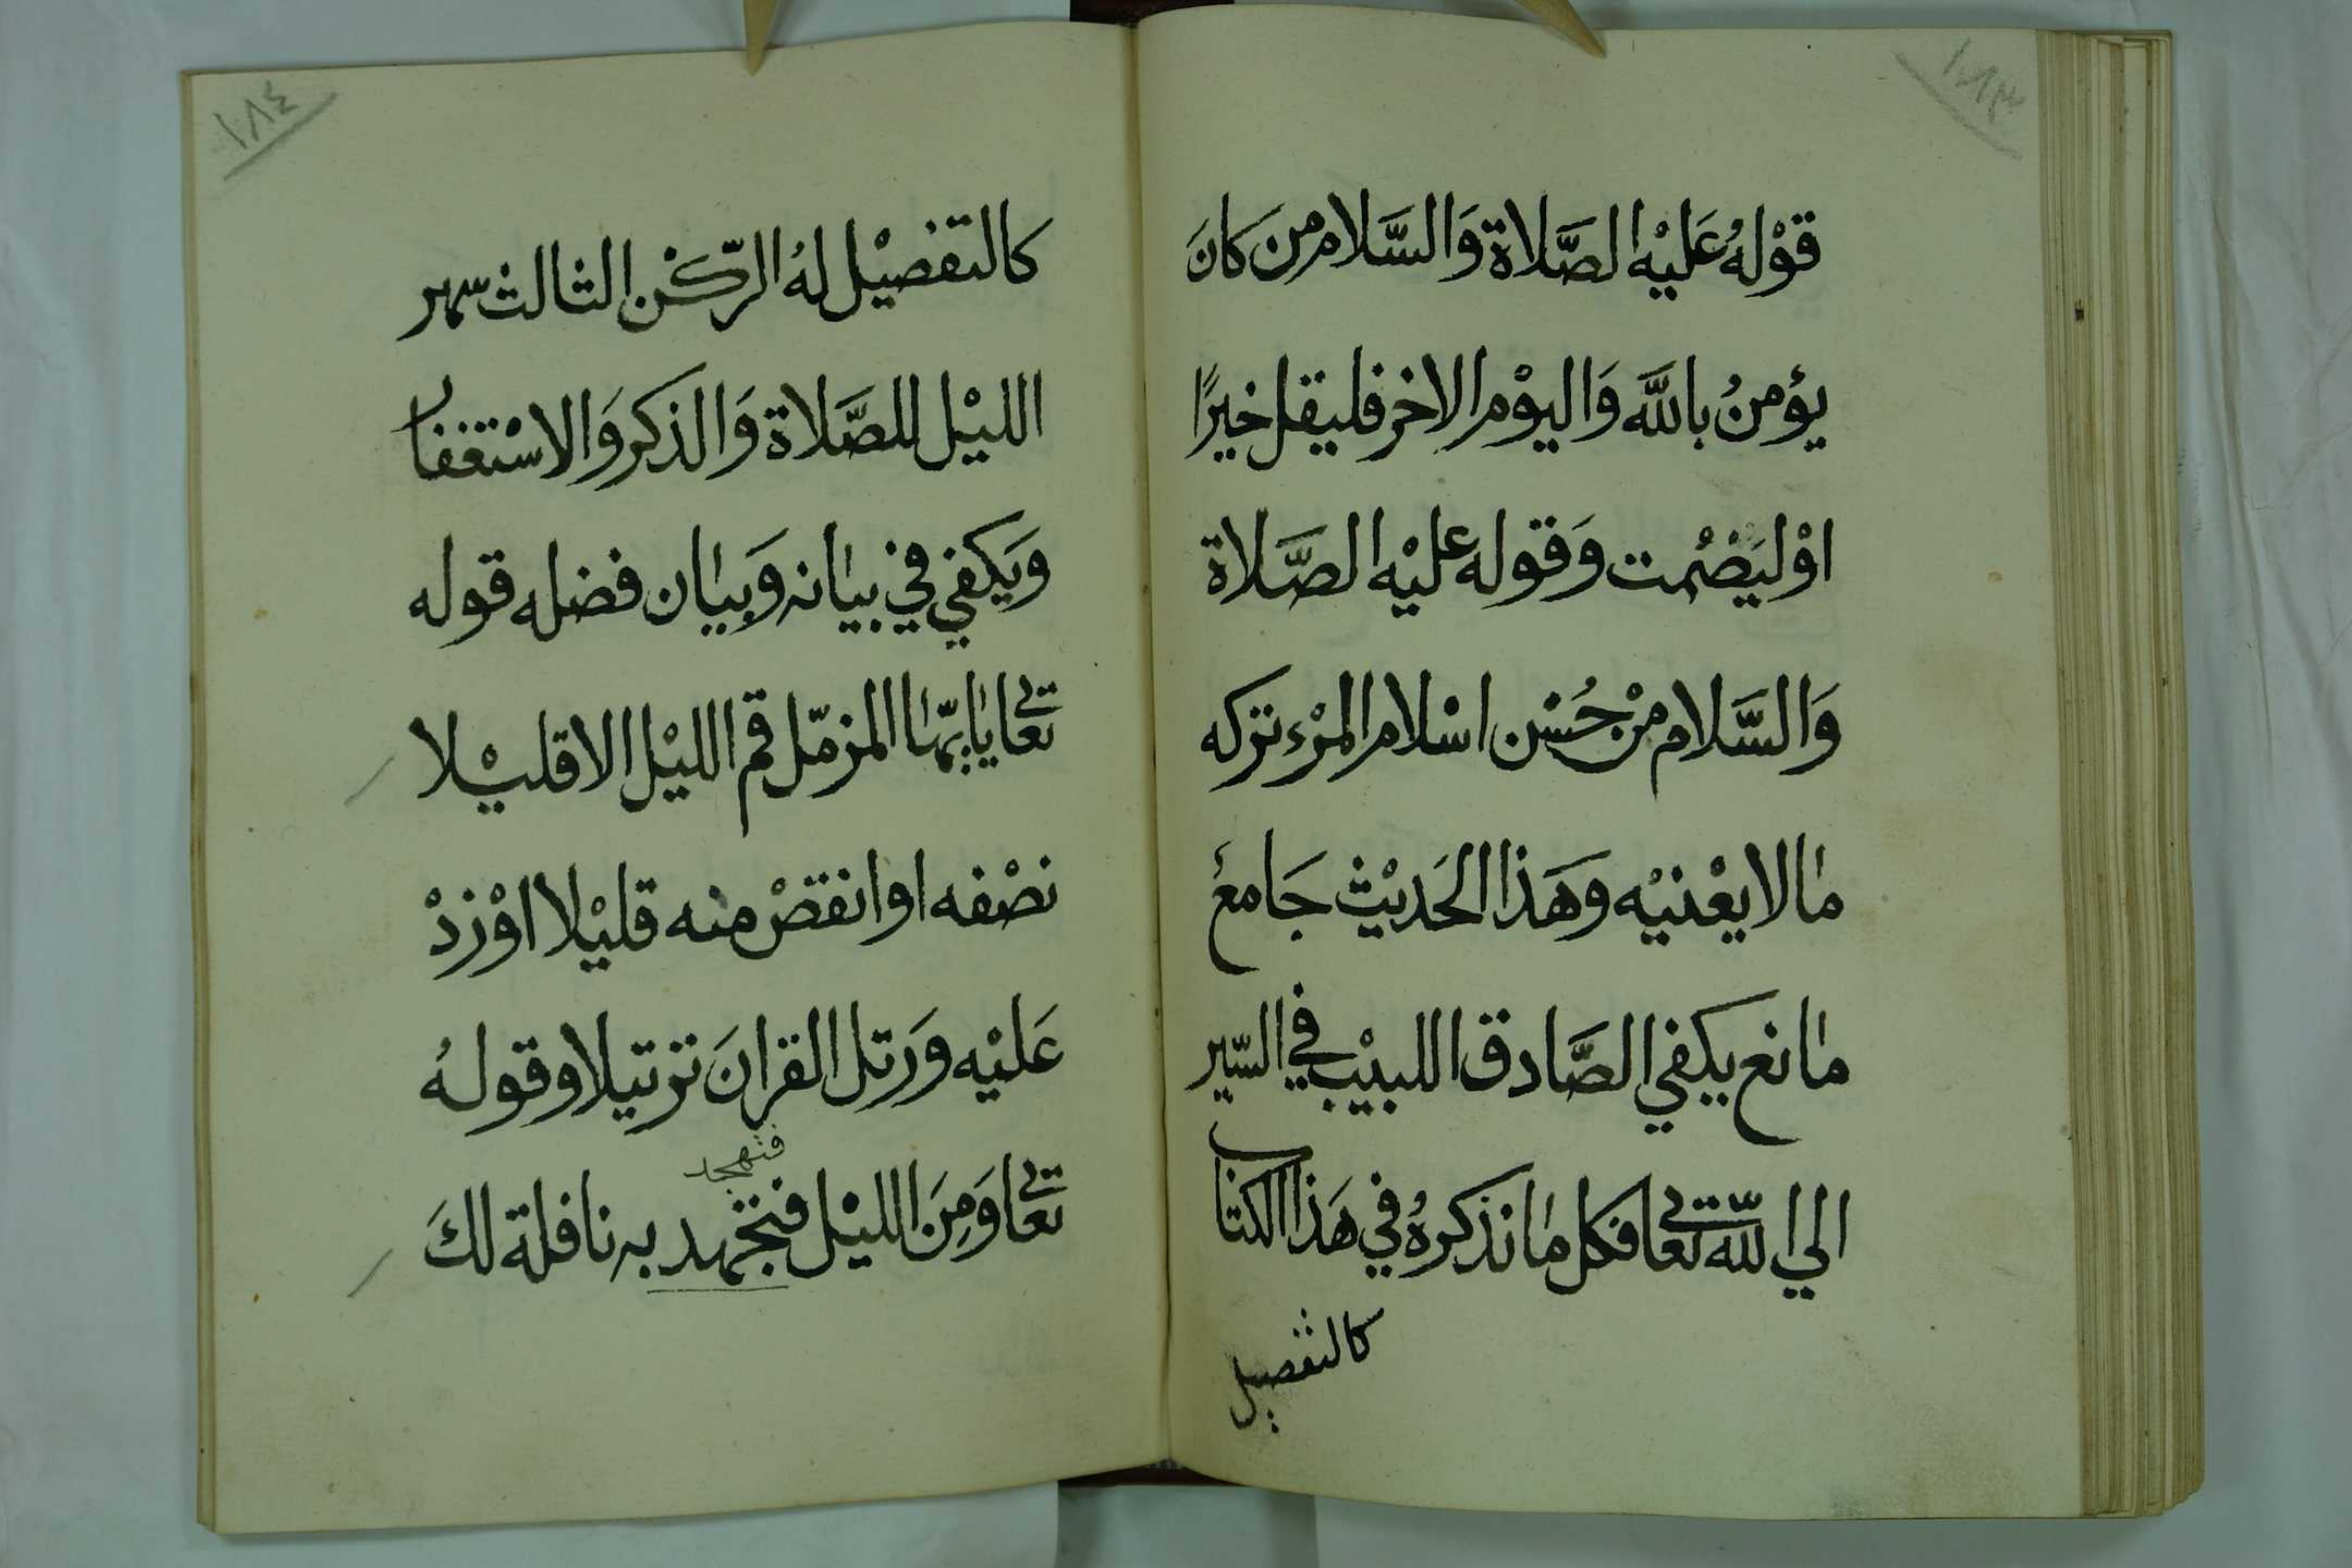 ١٨٣
قوْلهُ عَليْه الصَّلاة وَالسَّلام من كانَ
يؤمنُ باللَّه وَاليوْم الاخر فليقل خيرًا
اوْ ليَصْمُت وَقوله عليْه الصَّلاة
وَالسَّلام منْ حُسْن اسْلام المرْء تركه
مالا يعْنيْه وهَذا الحَديْث جَامعٌ
مانع يكفي الصَّادق اللبيْب في السّير
الي اللّه تعالى فكل مانذكرهُ في هَذا الكتاب
كالتفصيل
١٨٤
كالتفصيْل لهُ الرّكنْ الثالث سهر
الليْل للصَّلاة وَالذكر وَالاسْتغفار
وَيَكفي في بيانه وَبيان فضله قوله
تعالى ياايّها المزمّل قم الليْل الا قليْلا
نصْفه او انقصْ منه قليْلا اوْ زدْ
عَليْه وَرَتل القرانَ ترتيلا وقولهُ
فتهجد
تعالى وَمِنَ الليْل فتجهد به نافلة لكَ